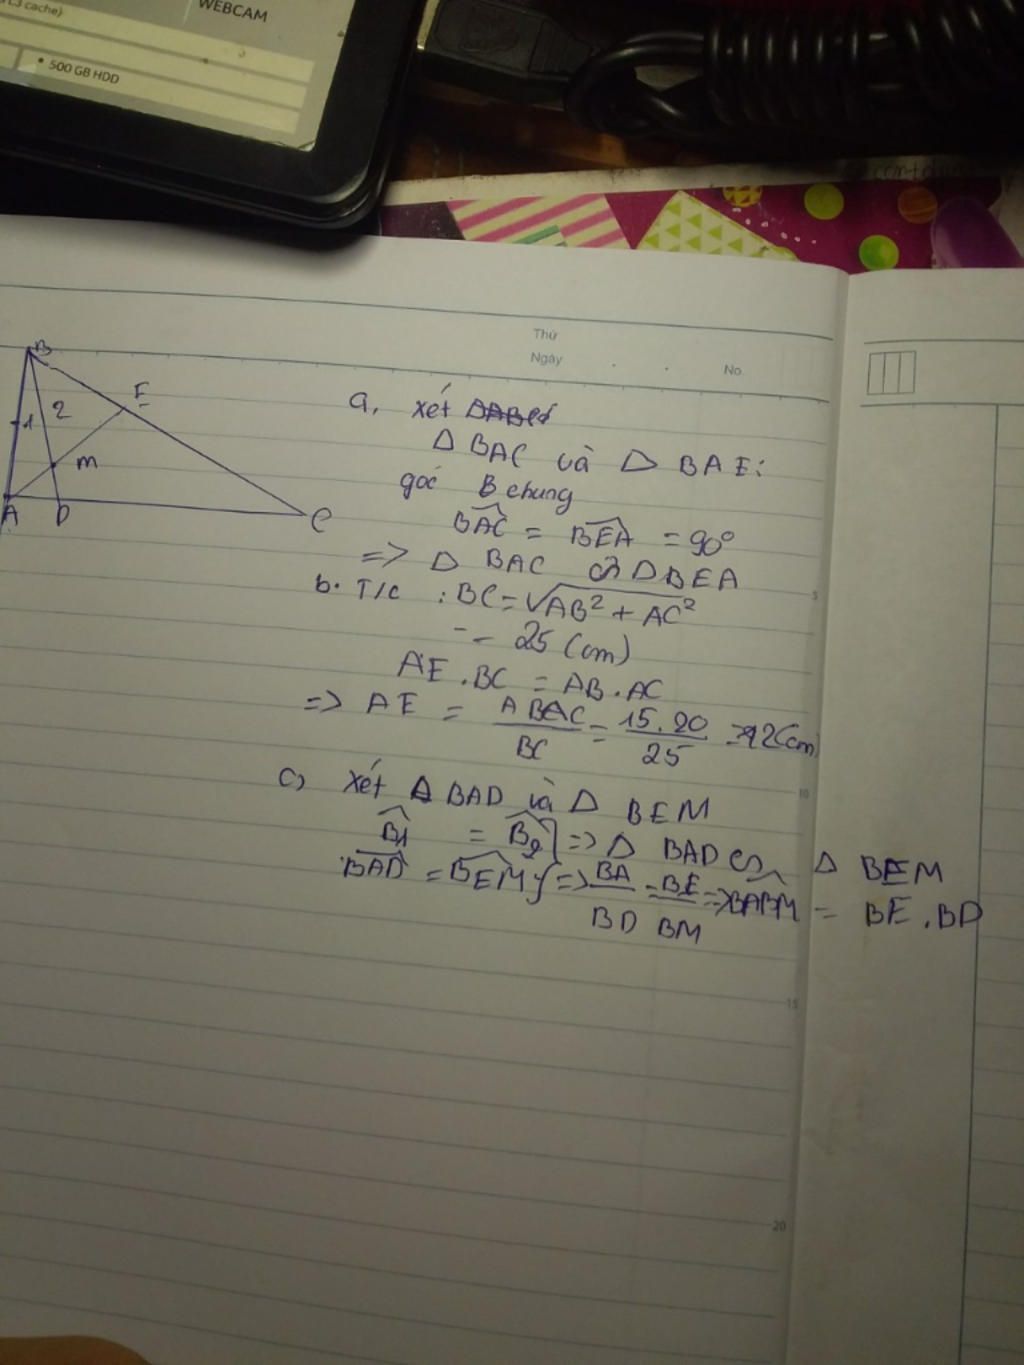 WEBCAM
L3 cache)
• 500 GB HDD
Thứ
Ngày
No.
B
E
1
2
M
A
D
C
a, xét
Δ BAC và Δ BAE:
góc B chung
BAC = BEA = 90°
=> Δ BAC ∽ Δ BEA
b. T/c : BC = √AB² + AC²
= 25 (cm)
AE . BC = AB . AC
=> AE = AB.AC/BC = 15.20/25 = 12(cm)
c) xét Δ BAD và Δ BEM
B1 = B2 } => Δ BAD ∽ Δ BEM
BAD = BEM } => BA/BD = BE/BM => BA.BM = BE.BD
5
10
15
20